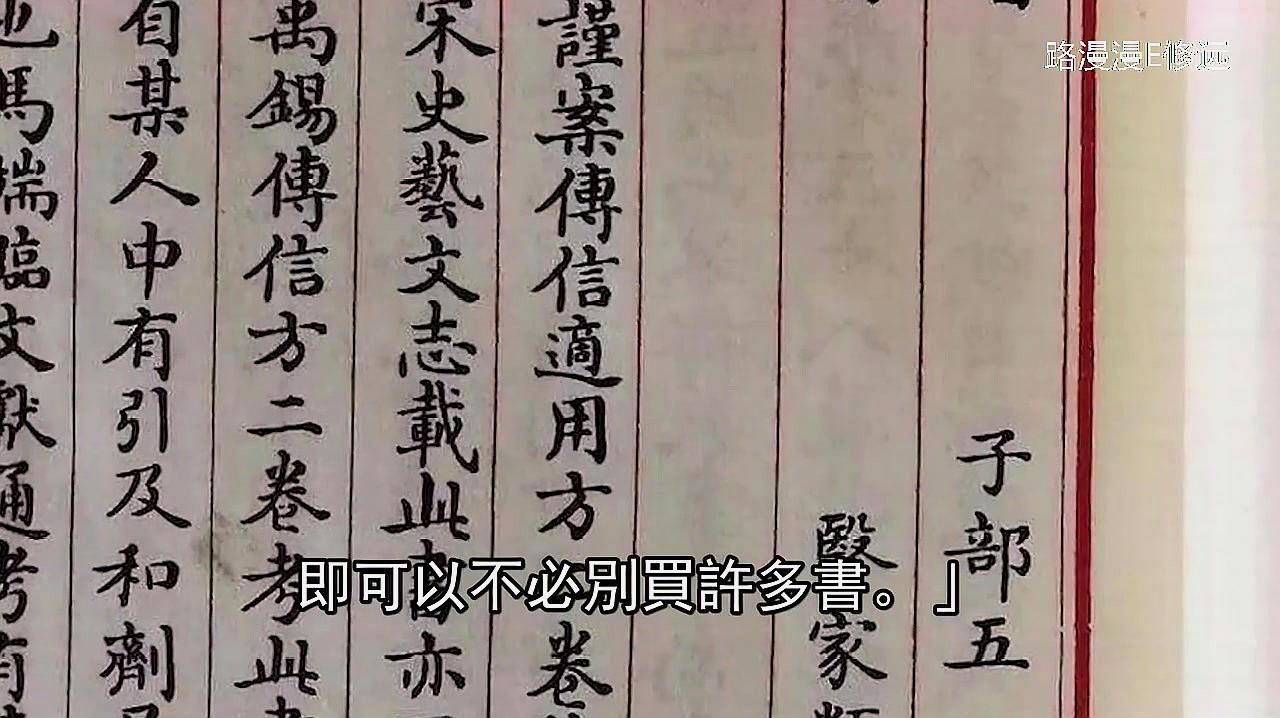 路漫漫E修远
子部五
醫家類
謹案傳信適用方
卷
宋史藝文志載此書亦
禹錫傳信方二卷考此書
自某人中有引及和劑及
也馬端臨文獻通考有
即可以不必別買許多書。」